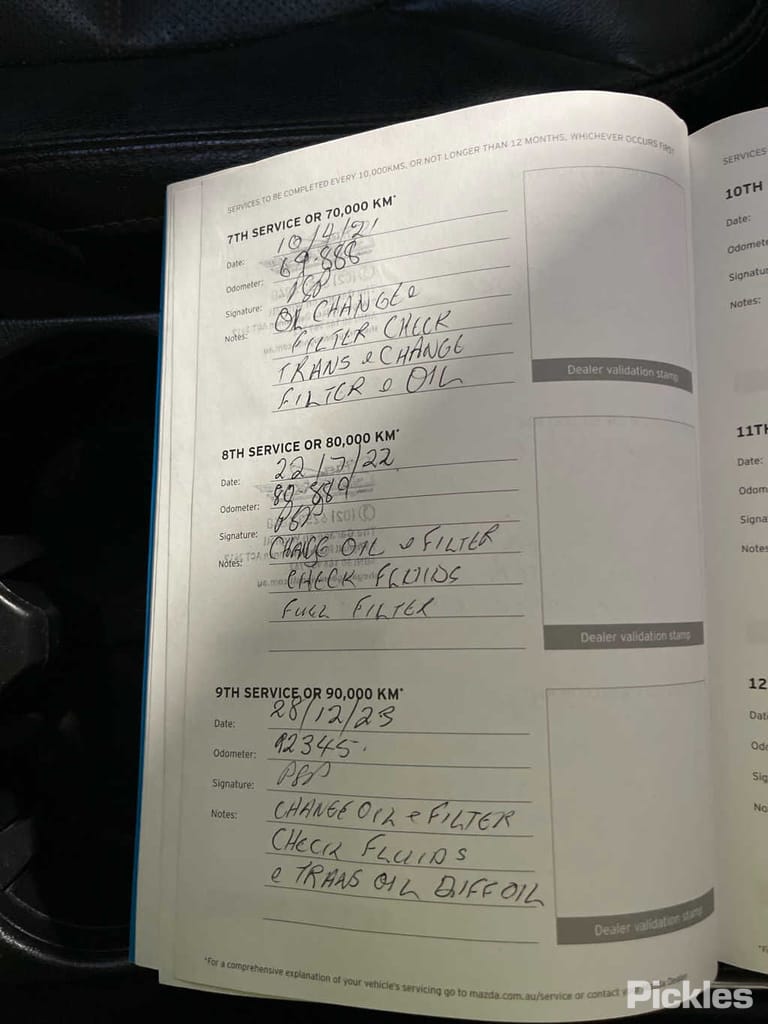 SERVICES TO BE COMPLETED EVERY 10,000KMS, OR NOT LONGER THAN 12 MONTHS, WHICHEVER OCCURS FIRST
7TH SERVICE OR 70,000 KM*
Date: 10/4/21
Odometer: 69.888
Signature: PSP
Notes: OIL CHANGE e
FILTER CHECK
TRANS e CHANGE
FILTER e OIL
Dealer validation stamp
8TH SERVICE OR 80,000 KM*
Date: 22/7/22
Odometer: 80.889
Signature: PSP
Notes: CHANGE OIL e FILTER
CHECK FLUIDS
FUEL FILTER
Dealer validation stamp
9TH SERVICE OR 90,000 KM*
Date: 28/12/23
Odometer: 92345.
Signature: PSP
Notes: CHANGE OIL e FILTER
CHECK FLUIDS
e TRANS OIL DIFF OIL
Dealer validation stamp
*For a comprehensive explanation of your vehicle's servicing go to mazda.com.au/service or contact Dealer
SERVICES
10TH
Date:
Odomete
Signatu
Notes:
11TH
Date:
Odom
Signa
Notes
12
Dat
Odo
Sig
No
Pickles